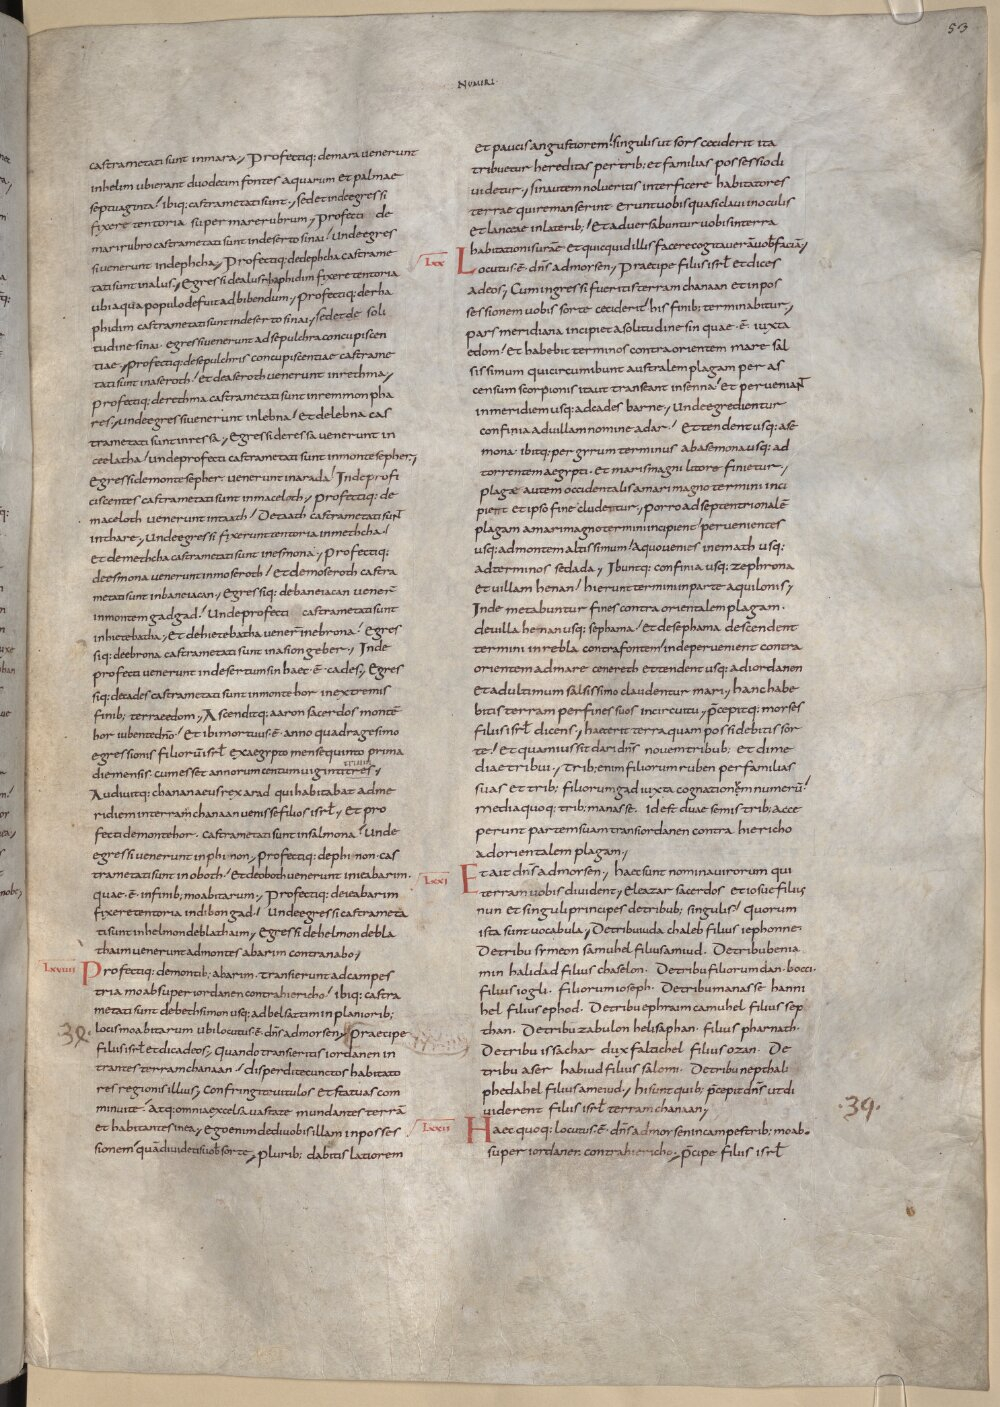 53
NUMERI
castrametati sunt inmara, Profectiq: demara uenerunt
inhelim ubierant duodecim fontes aquarum et palmae
septuaginta! ibiq: castrametati sunt, sed et inde egressi
fixere tentoria super marerubrum, Profecti de
marirubro castrametati sunt indeserto sinai! Unde egres
si uenerunt indephcha, Profectiq: dedephcha castrame
tati sunt inalus, Egressi dealus raphidim fixere tentoria
ubi aqua populo defuit adbibendum, Profectiq: derha
phidim castrametati sunt indeserto sinai, sed et de soli
tudine sinai. egressi uenerunt ad sepulchra concupiscen
tiae, Profectiq: desepulchris concupiscentiae castrame
tati sunt inaseroth! Et deaseroth uenerunt inrethma,
Profectiq: derethma castrametati sunt inremmon pha
res, unde egressi uenerunt inlebna! Et delebna cas
trametati sunt inressa, Egressi deressa uenerunt in
ceelatha! unde profecti castrametati sunt inmonte sepher,
Egressi demonte sepher. uenerunt inarada! Inde profi
ciscentes castrametati sunt inmaceloth, Profectiq: de
maceloth uenerunt intaath! Detaath castrametati sunt
inthare, Unde egressi fixerunt tentoria inmethcha!
Et demethcha castrametati sunt inesmona, Profectiq:
deesmona uenerunt inmoseroth! Et demoseroth castra
metati sunt inbaneiacan, Egressiq: debaneiacan uenerū
inmontem gadgad! Unde profecti castrametati sunt
inhietebatha, Et dehietebatha uenerūt inebrona! Egres
siq: deebrona castrametati sunt inasiongeber, Inde
profecti uenerunt indesertum sin haec ē cades, Egres
siq: decades castrametati sunt inmonte hor inextremis
finib; terrae edom, Ascenditq: aaron sacerdos montē
hor iubente dn̄o! Et ibi mortuus ē anno quadragesimo
egressionis filiorū isrł exaegypto mense quinto prima
die mensis. cum esset annorum centum uiginti tres,
trium
Audiuitq: chananaeus rex arad qui habitabat ad me
ridiem interram chanaan uenisse filios isrł, Et pro
fecti demonte hor. castrametati sunt insalmona! Unde
egressi uenerunt inphinon, Profectiq: dephinon cas
trametati sunt inoboth! Et deoboth uenerunt inieabarim.
quae ē infinib; moabitarum, Profectiq: deieabarim
fixere tentoria indibon gad! Unde egressi castrameta
ti sunt inhelmon deblathaim, Egressi dehelmon debla
thaim uenerunt admontes abarim contra nabo,
LXVIIII Profectiq: demontib; abarim. transierunt ad campes
tria moab super iordanen contra hiericho! ibiq: castra
metati sunt debethsimon usq: ad belsattim in planiorib;
38. locis moabitarum ubi locutus ē dn̄s ad morsen, Praecipe
filiis isrł et dic ad eos, Quando transieritis iordanen in
trantes terram chanaan! disperdite cunctos habitato
res regionis illius, Confringite titulos et statuas com
minuite! Atq: omnia excelsa uastate mundantes terrā
et habitantes in ea, Ego enim dedi uobis illam in posses
sionem quā diuidetis uob sorte, Plurib; dabitis latiorem
et paucis angustiorem! singulis ut sors ceciderit ita
tribuetur hereditas per trib; et familias possessio di
uidetur, sin autem nolueritis interficere habitatores
terrae qui remanserint erunt uobis quasi claui in oculis
et lanceae in laterib;! Et aduersabuntur uobis in terra
habitationis uřae Et quicquid illis facere cogitauerā uob faciā,
LXX Locutus ē dn̄s ad morsen, Praecipe filiis isrł et dices
ad eos, Cum ingressi fueritis terram chanaan et in pos
sessionem uobis sorte ceciderit! his finib; terminabitur,
pars meridiana incipiet a solitudine sin quae ē iuxta
edom! Et habebit terminos contra orientem mare sal
sissimum qui circumibunt australem plagam per as
censum scorpionis ita ut transeant in senna! Et perueniant
in meridiem usq: ad cades barne, Unde egredientur
confinia ad uillam nomine adar! Et tendent usq: ase
mona. ibitq: per gyrum terminus ab asemona usq: ad
torrentem aegypti. Et maris magni litore finietur,
plagae autem occidentalis a mari magno termini inci
pient et ipso fine cludentur, Porro ad septentrionalē
plagam a mari magno termini incipient peruenientes
usq: ad montem altissimum! A quo uenies in emath usq:
ad terminos sedada, Ibuntq: confinia usq: zephrona
et uillam henan! hi erunt termini in parte aquilonis,
Inde metabuntur fines contra orientalem plagam.
de uilla henan usq: sephama! Et de sephama descendent
termini in rebla contra fontem! inde peruenient contra
orientem ad mare cenereth et tendent usq: ad iordanen
Et ad ultimum salsissimo claudentur mari, hanc habe
bitis terram per fines suos in circuitu, p̄cepitq: morses
filiis isrł dicens, haec erit terra quam possidebitis sor
te! Et quam iussit dari dn̄s nouem tribub; et dimi
diae tribui, Trib; enim filiorum ruben per familias
suas et trib; filiorum gad iuxta cognationem numerū!
Media quoq: trib; manasse. id est duae semis trib; acce
perunt partem suam trans iordanen contra hiericho
ad orientalem plagam,
LXXI Et ait dn̄s ad morsen, haec sunt nomina uirorum qui
terram uobis diuident, Eleazar sacerdos et iosue filius
nun et singuli principes de tribub; singulis! quorum
ista sunt uocabula, De tribu iuda chaleb filius iephonne.
De tribu symeon samuhel filius amiud. De tribu benia
min halidad filius chaselon. De tribu filiorum dan. bocci.
filius iogli. Filiorum ioseph. De tribu manasse hanni
hel filius ephod. De tribu ephraim camuhel filius sep
than. De tribu zabulon helisaphan. filius pharnath.
De tribu issachar dux faltihel filius ozan. De
tribu aser habiud filius salomi. De tribu nepthali
phedahel filius ameiud, hi sunt quib; p̄cepit dn̄s ut di
uiderent filiis isrł terram chanaan,
.39.
LXXII Haec quoq: locutus ē dn̄s ad morsen in campestrib; moab.
super iordanen contra hiericho, p̄cipe filiis isrł